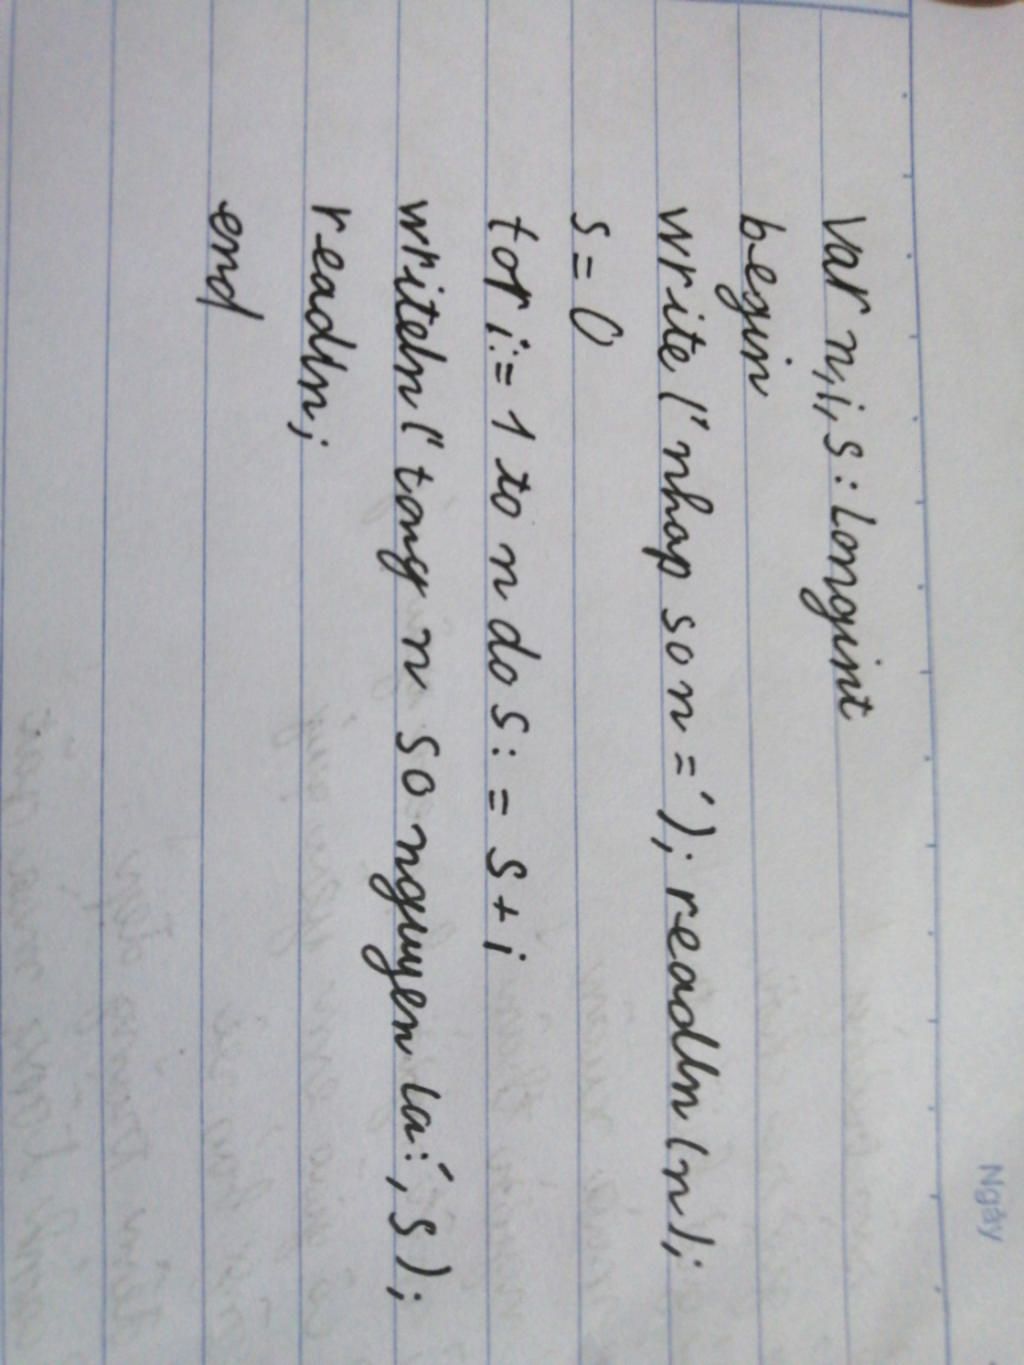 Ngày
Var n,i,s: longint
begin
write ('nhap so n = '); readln (n);
s = 0
for i:= 1 to n do s: = s + i
writeln ('tong n so nguyen la:', s);
readln;
end